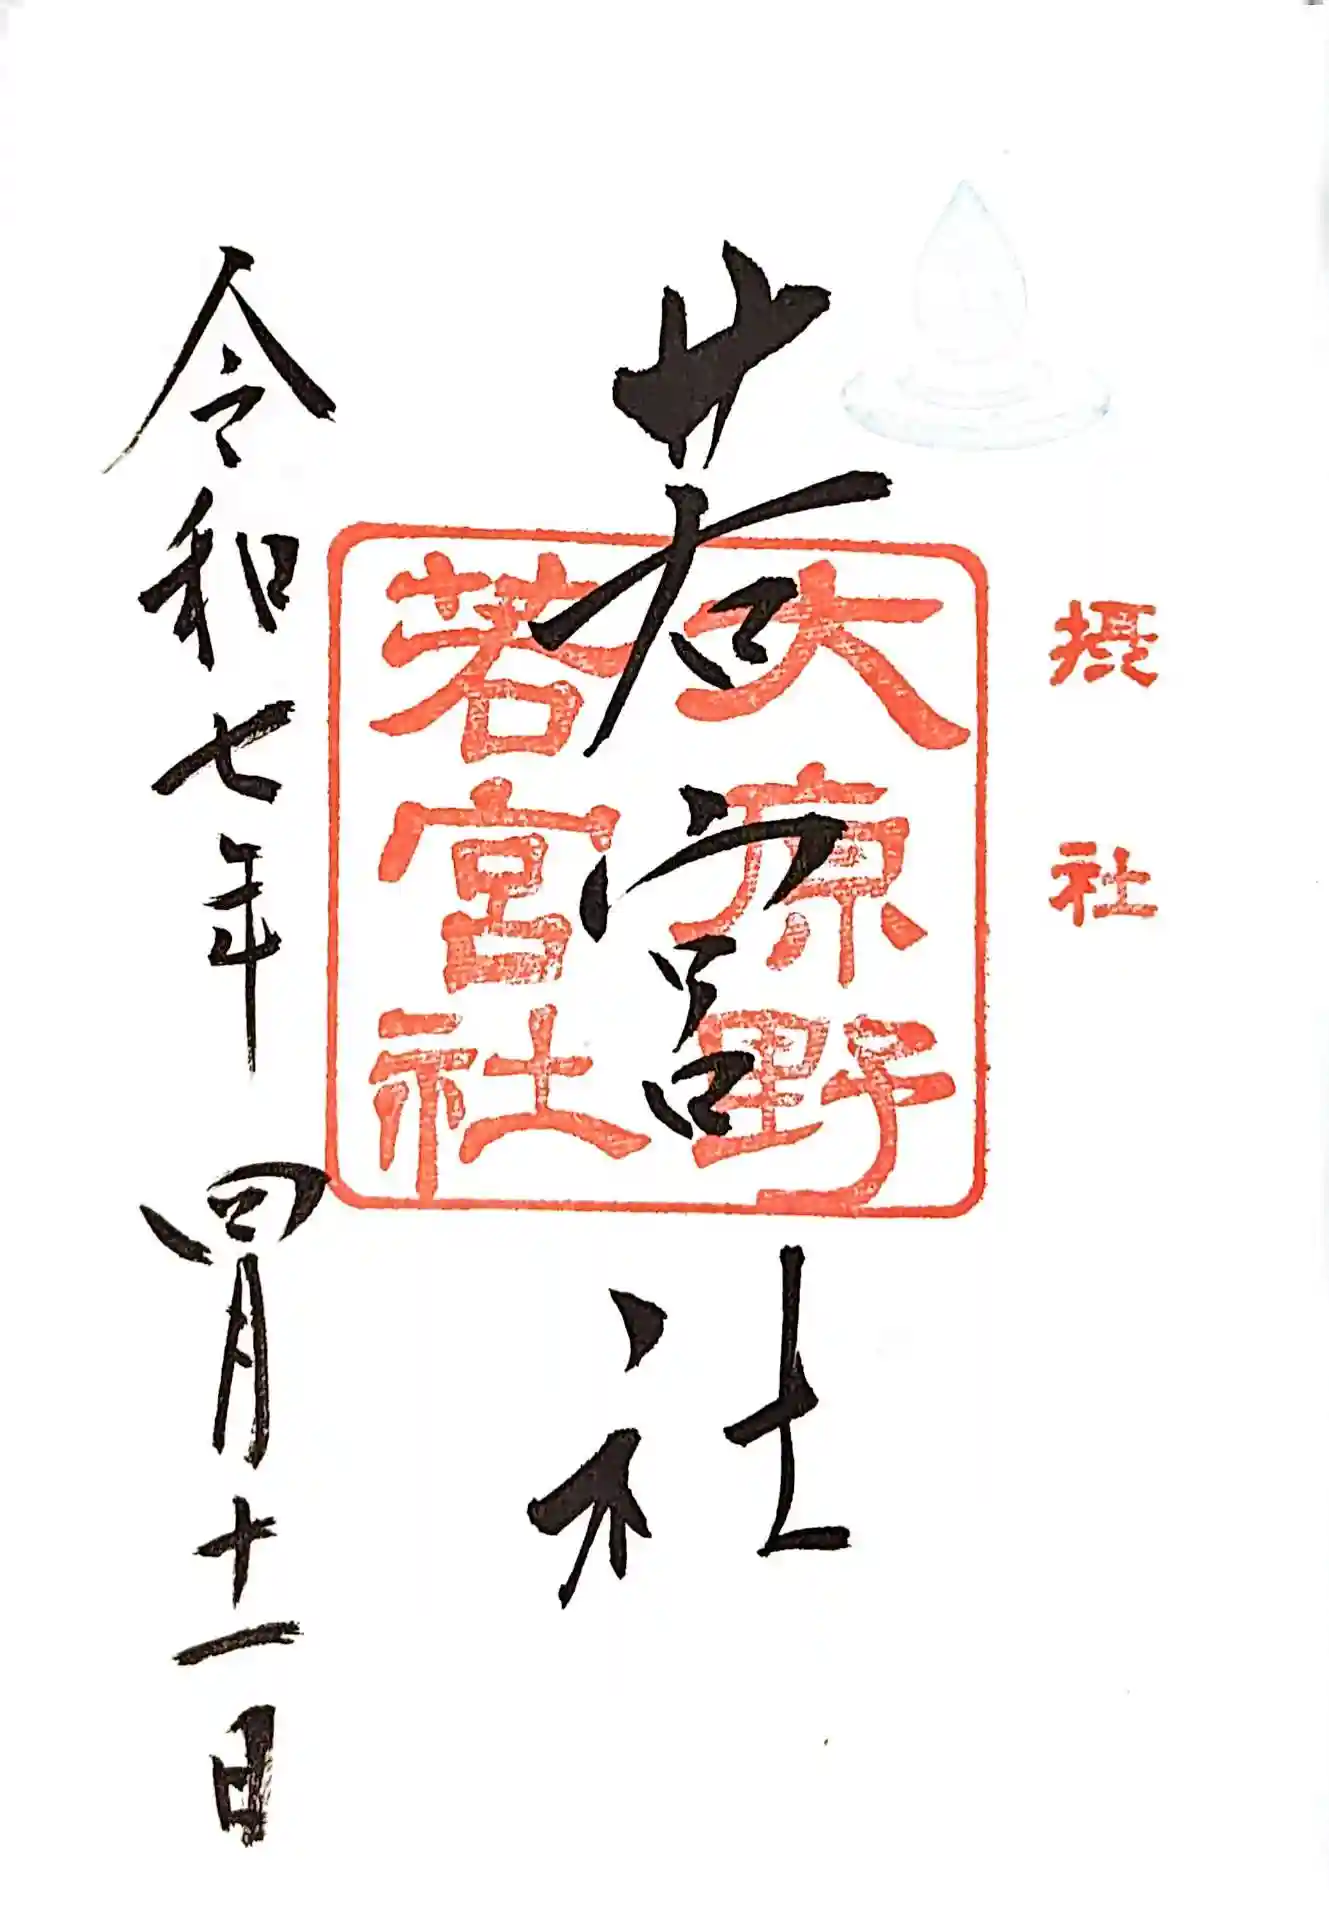 摂社
若宮社
大原野
若宮社
令和七年 四月十一日